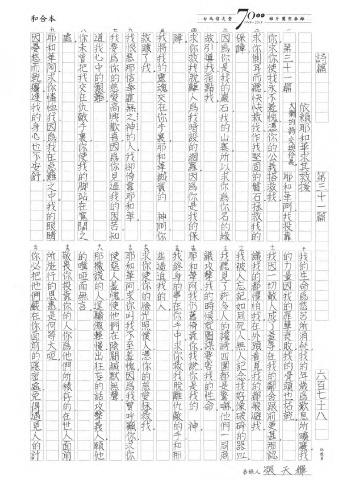 和合本
70
詩篇 第三十一篇 六百七十八
依賴耶和華求其救援
第三十一篇 大衛的詩交與伶長 耶和華啊我投靠
你求你使我永不羞愧憑你的公義搭救我
求你側耳而聽快快救我作我堅固的磐石拯救我的
保障
因為你是我的巖石我的山寨所以求你為你名的緣
故引導我指點我
求你救我脫離人為我暗設的網羅因為你是我的保
障
我將我的靈魂交在你手裏耶和華誠實的 神啊你
救贖了我
我恨惡那信奉虛無之神的人我卻倚靠耶和華
我要為你的慈愛高興歡喜因為你見過我的困苦知
道我心中的艱難
你未曾把我交在仇敵手裏你使我的腳站在寬闊之
處
耶和華啊求你憐恤我因為我在急難之中我的眼睛
因憂愁而乾癟連我的身心也不安舒
我的生命為愁苦所消耗我的年歲為歎息所曠廢我
的力量因我的罪孽衰敗我的骨頭也枯乾
我因一切敵人成了羞辱在我的鄰舍跟前更甚那認
識我的都懼怕我在外頭看見我的都躲避我
我被人忘記如同死人無人記念我好像破碎的器皿
我聽見了許多人的讒謗四圍都是驚嚇他們一同商
議攻擊我的時候就圖謀要害我的性命
耶和華啊我仍舊倚靠你我說你是我的 神
我終身的事在你手中求你救我脫離仇敵的手和那
些逼迫我的人
求你使你的臉光照僕人憑你的慈愛拯救我
耶和華啊求你叫我不至羞愧因為我曾呼籲你求你
使惡人羞愧使他們在陰間緘默無聲
那撒謊的人逞驕傲輕慢出狂妄的話攻擊義人願他
的嘴唇啞而無言
敬畏你投靠你的人你為他們所積存的在世人面前
所施行的恩惠是何等大呢
你必把他們藏在你面前的隱密處免得遇見人的計
恭錄人